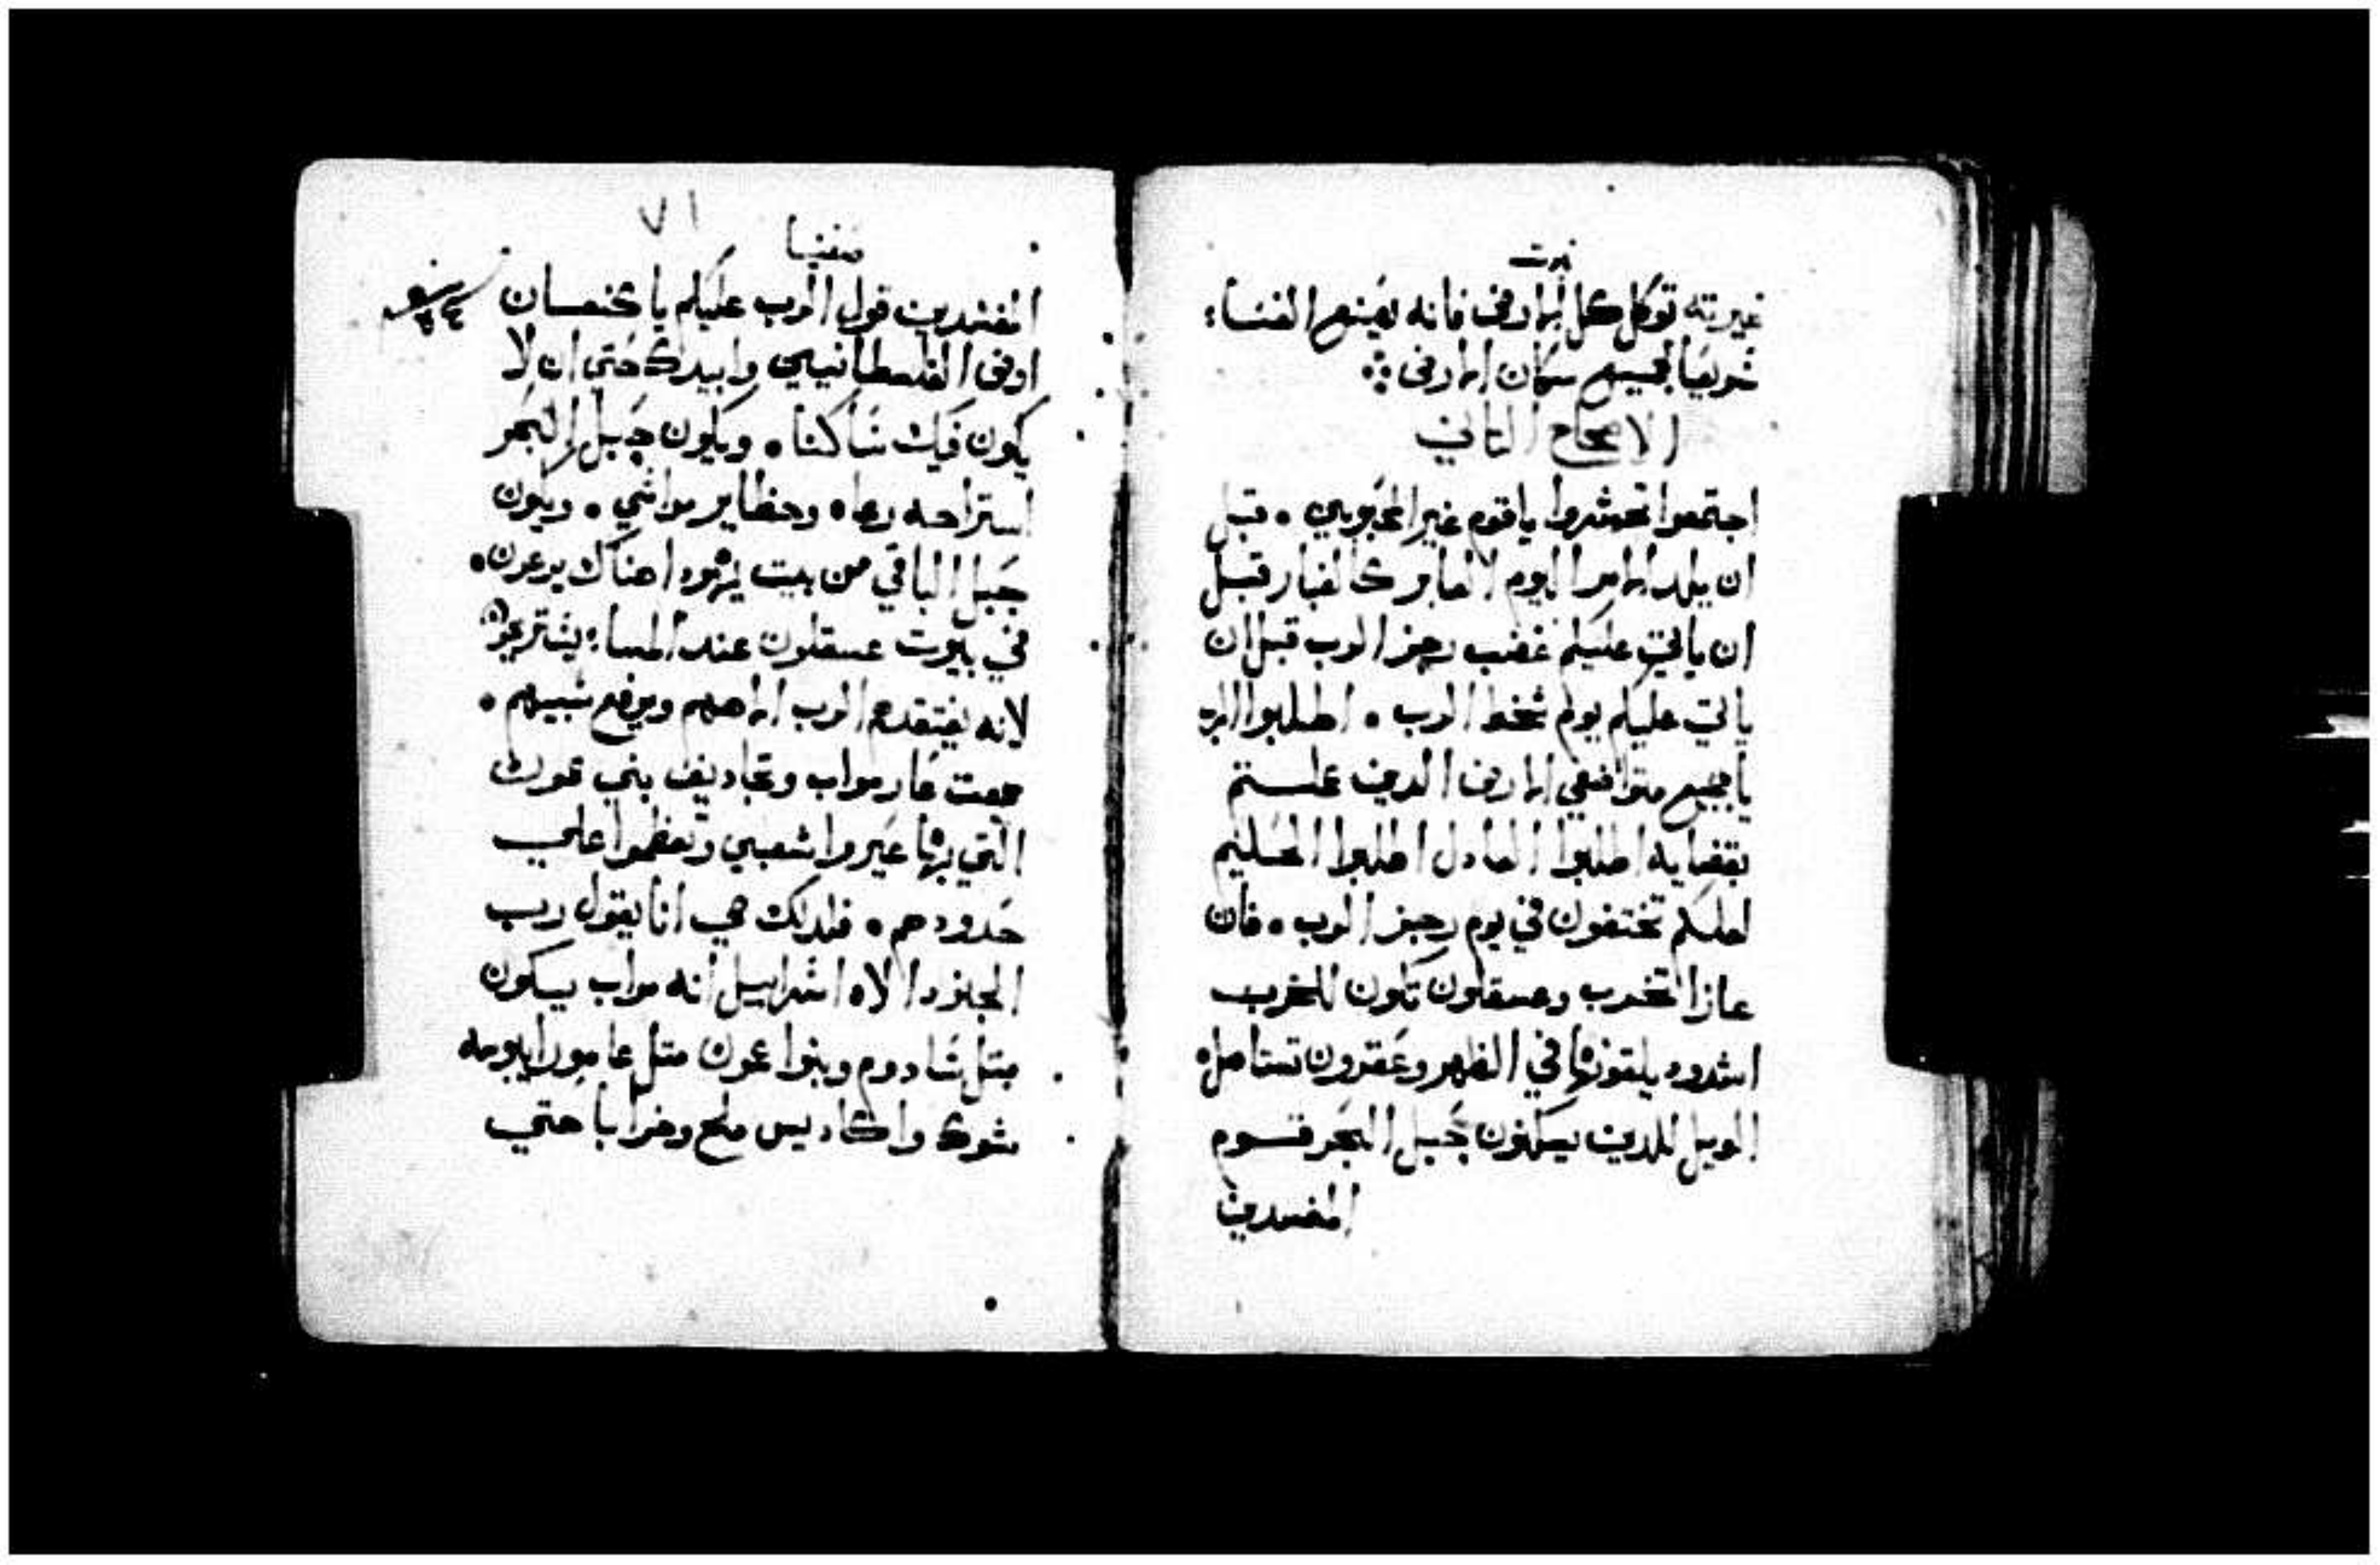 نبوت
غيرته توكل كل الارض فانه يصنع الفنا؛
شريعا لجميع سكان الارض
الاصحاح التاني
اجتمعوا تحشروا ياقوم غير المحبوبين • قبل
ان يلد الامر اليوم العابر كالغبار قبل
ان ياتي عليكم غضب رجز الرب قبل ان
ياتي عليكم يوم سخط الرب • اطلبوا الرب
ياجميع متواضعي الارض الدين علستم
بقضايه اطلبوا العادل اطلبوا الحليم
لعلكم تختفون في يوم رجز الرب • فان
عازا تخرب وعسقلون تكون للخرب
اشدود يلقونها في الظهر وعقرون تستاصل•
الويل للدين يسكنون جبل البحر قوم
المفسدين
صفنيا
٧١
المفسدين قول الرب عليكم يا كنعان
ارض الفلسطانيين وابيدك حتي ان لا
يكون فيك ساكنا • ويكون جبل البحر
استراحه رعاه وحظاير مواشي • ويكون
جبل الباقي من بيت يهودا هناك يرعون•
في بيوت عسقلون عند المسا؛ يستريحون
لانه يفتقدهم الرب الاههم ويرفع سبيهم •
سمعت عار مواب وتجاديف بني عمون
التي بها عيروا شعبي وتعظموا علي
حدودهم • فلدلك حي انا يقول رب
الجنود الاه اسراييل انه مواب سيكون
متل سادوم وبنوا عمون متل عامورا يبوسه
شوك واكاديس ملح وخرابا حتي